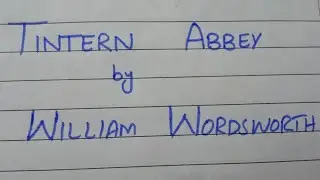 TINTERN ABBEY
by
WILLIAM WORDSWORTH